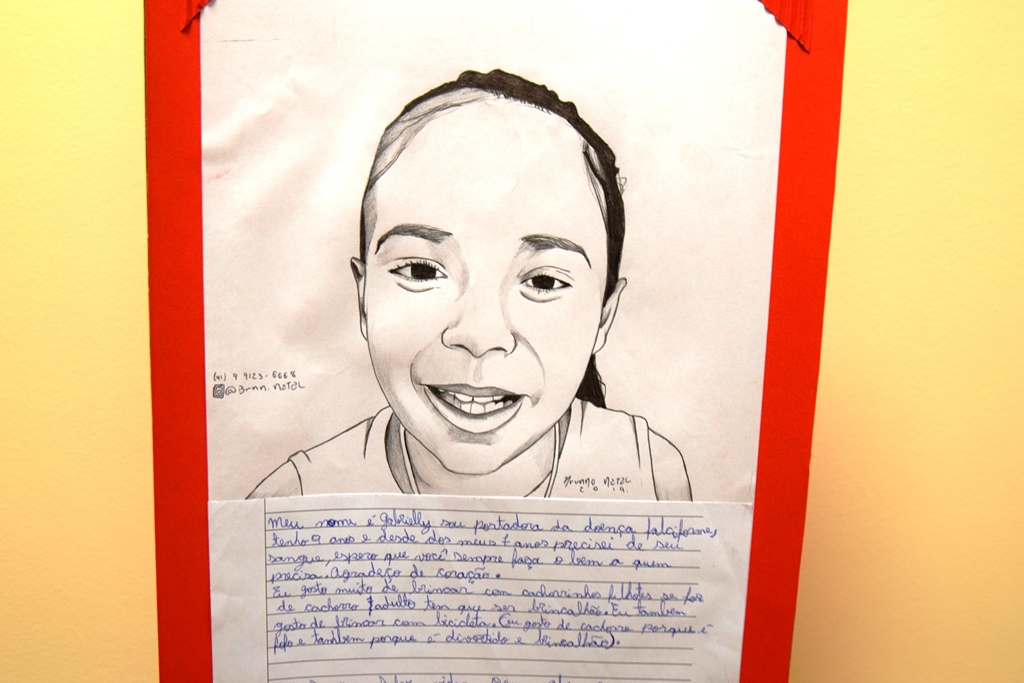 (41) 9 9123-6668
@Brnn.natel
Brunno natel
2019.
Meu nome é Gabrielly sou portadora da doença falciforme,
tenho 9 anos e desde dos meus 7 anos precisei de seu
sangue, espero que você sempre faça o bem a quem
precisa. Agradeço de coração.
Eu gosto muito de brincar com cachorrinhos filhotes se for
de cachorro adulto tem que ser brincalhão. Eu também
gosto de brincar com bicicleta. (Eu gosto de cachorro porque é
fofo e também porque é divertido e brincalhão).